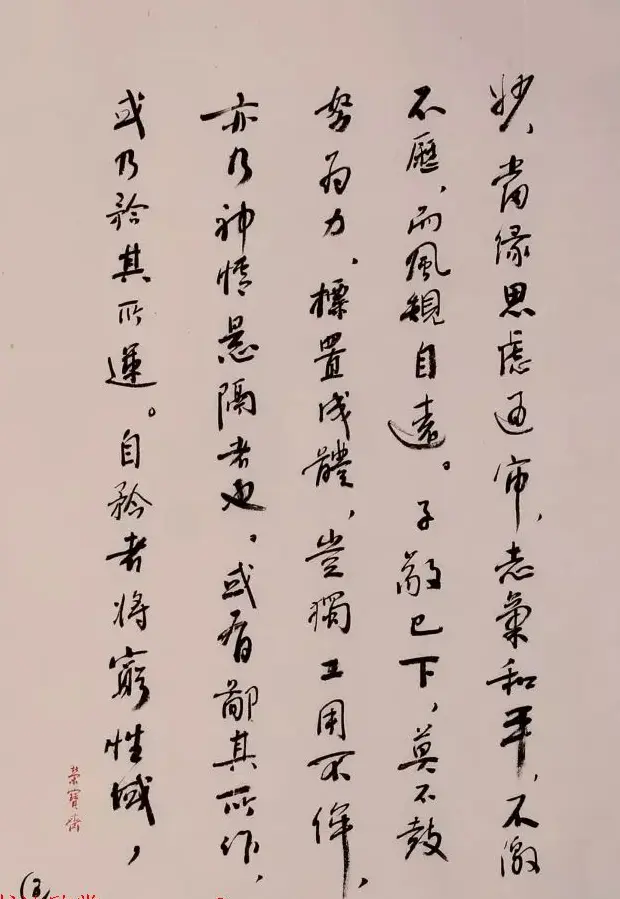 妙、當緣思慮通審，志氣和平，不激
不厲、而風規自遠。子敬已下，莫不鼓
努為力、標置成體、豈獨工用不侔，
亦乃神情懸隔者也。或有鄙其所作，
或乃矜其所運。自矜者將窮性域，
榮寶齋